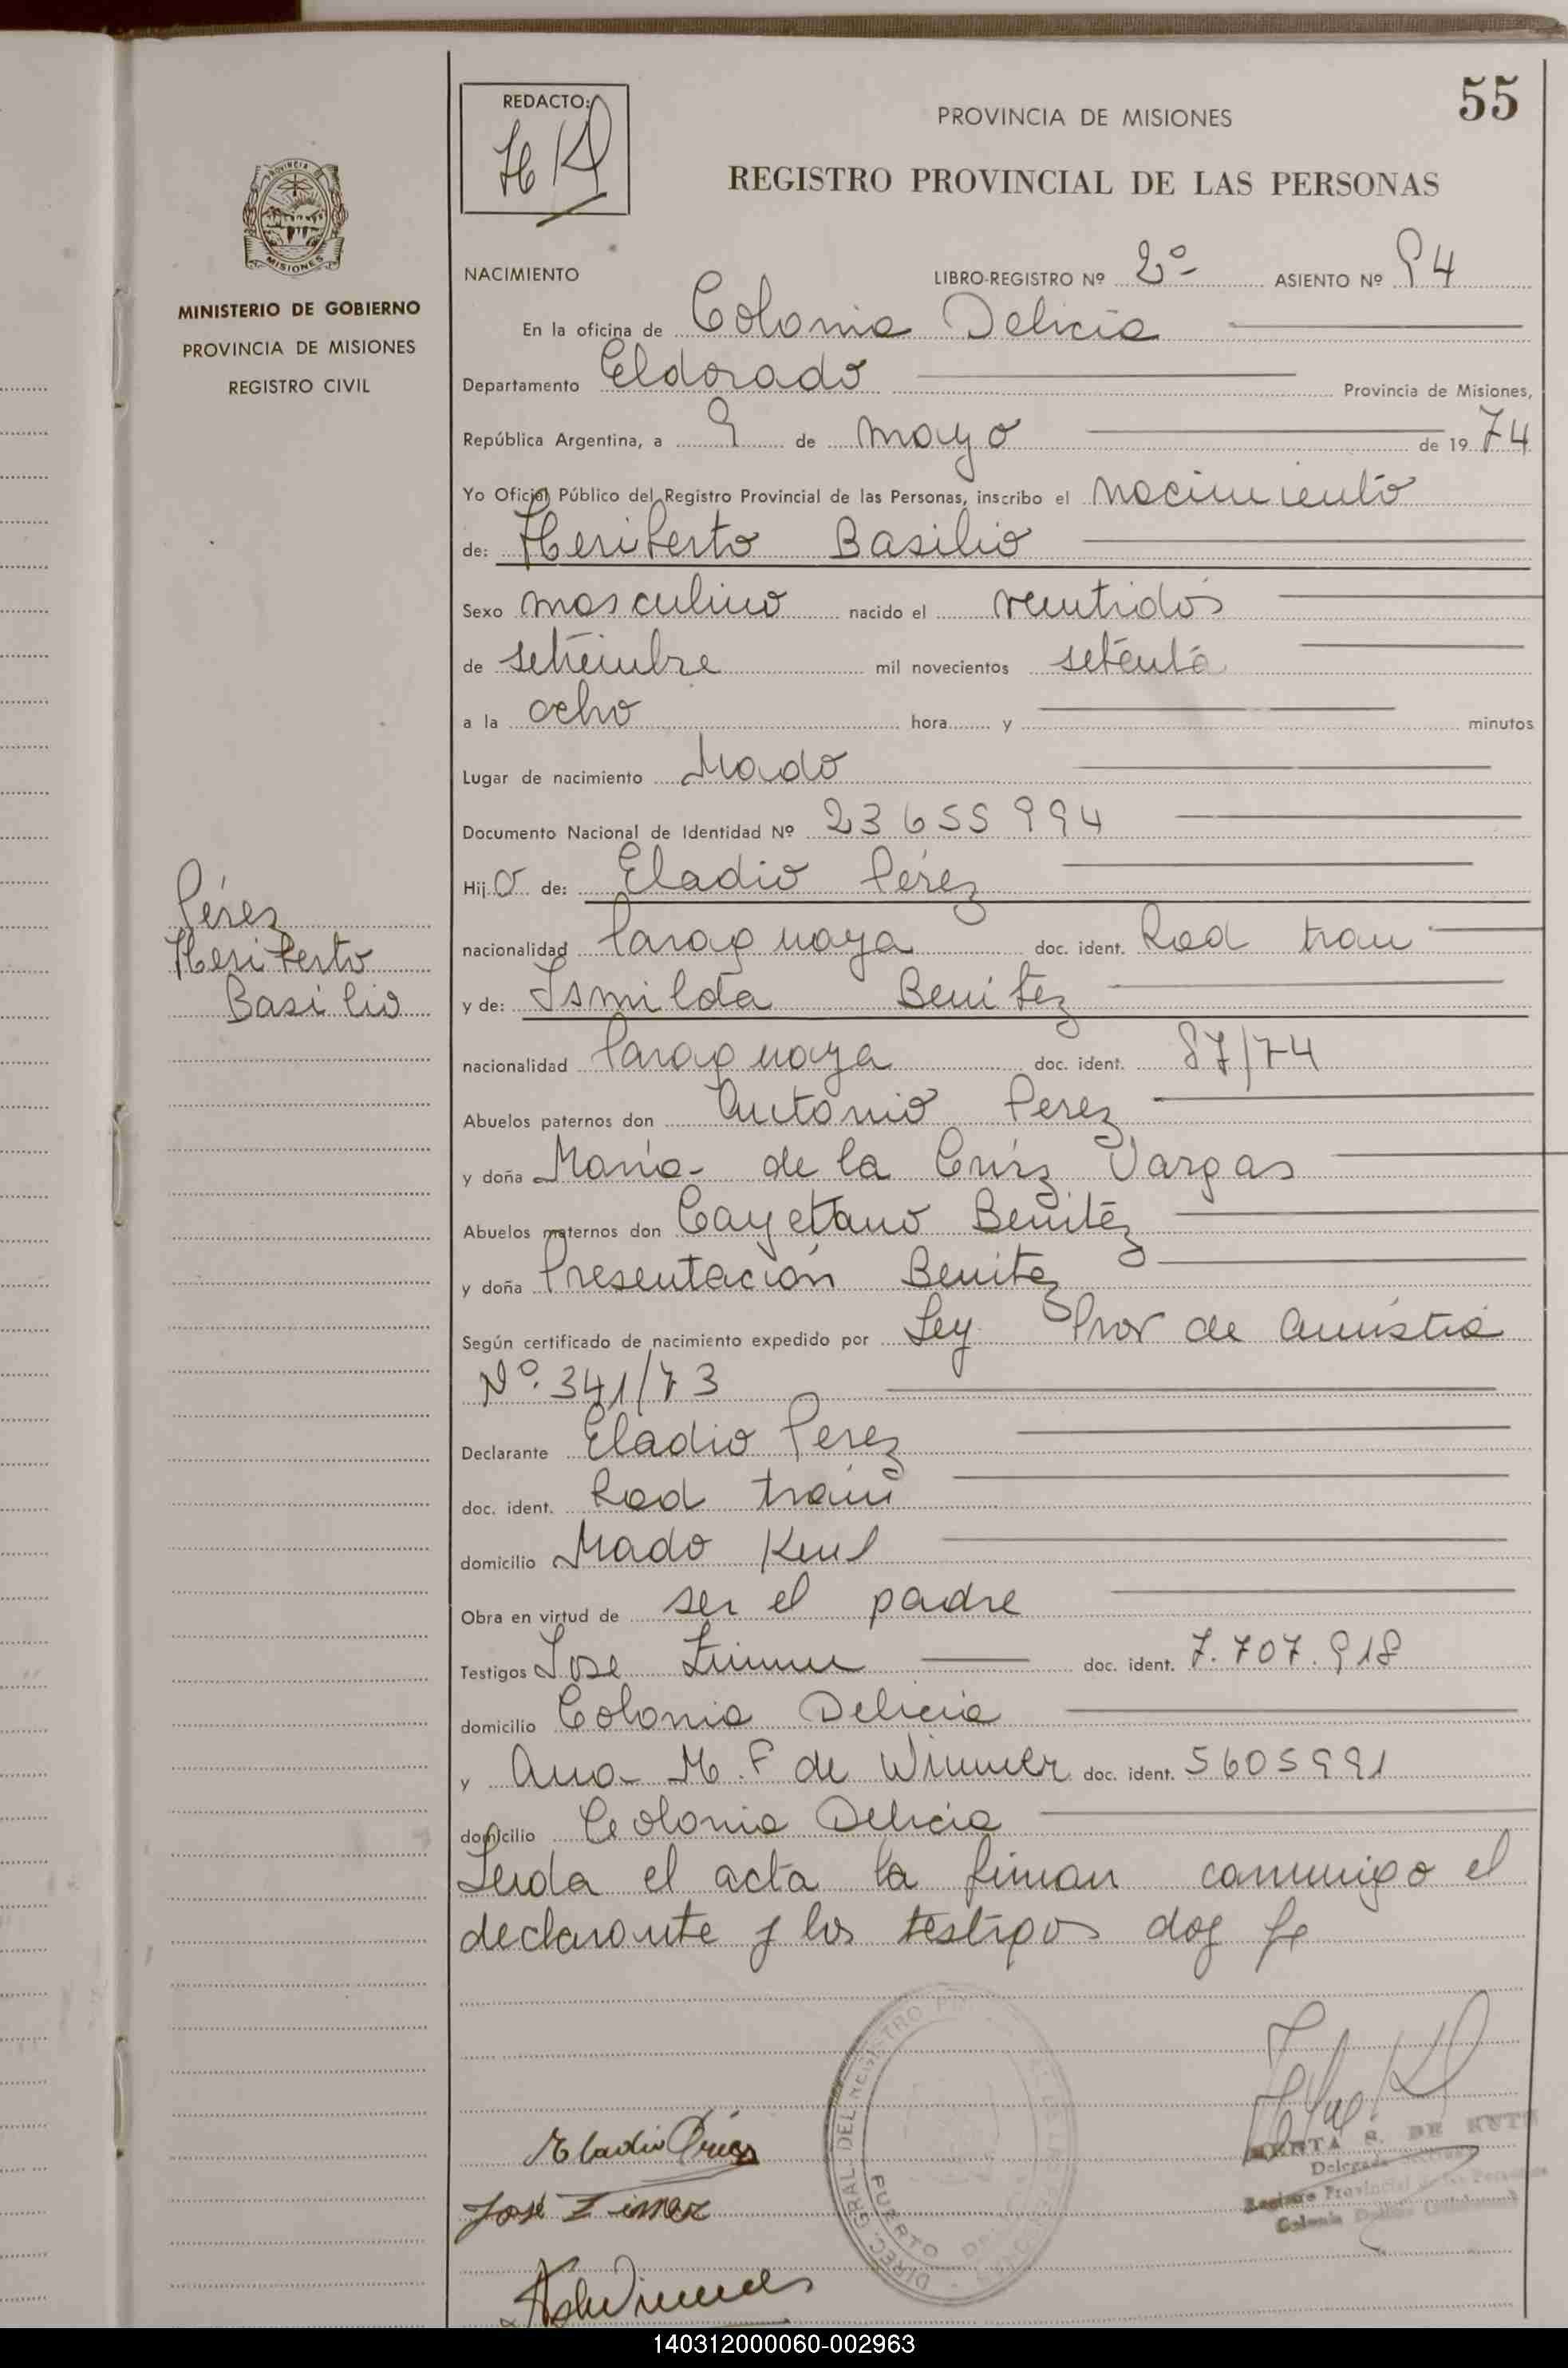 55
REDACTO:
PROVINCIA DE MISIONES
REGISTRO PROVINCIAL DE LAS PERSONAS
PROVINCIA
MISIONES
MINISTERIO DE GOBIERNO
PROVINCIA DE MISIONES
REGISTRO CIVIL
NACIMIENTO LIBRO-REGISTRO Nº 2º ASIENTO Nº 94
En la oficina de Colonia Delicia
Departamento Eldorado Provincia de Misiones,
República Argentina, a 9 de mayo de 1974
Yo Oficial Público del Registro Provincial de las Personas, inscribo el nacimiento
de: Heriberto Basilio
Sexo masculino nacido el veintidós
de setiembre mil novecientos setenta
a la ocho hora y minutos
Lugar de nacimiento Mado
Documento Nacional de Identidad Nº 23655994
Hijo de: Eladio Pérez
Pérez
Heriberto
Basilio
nacionalidad Paraguaya doc. ident. Rad tram
y de: Ismilda Benitez
nacionalidad Paraguaya doc. ident. 87/74
Abuelos paternos don Antonio Perez
y doña Maria de la Cruz Vargas
Abuelos maternos don Cayetano Benitez
y doña Presentación Benitez
Según certificado de nacimiento expedido por Ley Prov de Amnistia
Nº 341/73
Declarante Eladio Perez
doc. ident. Rad tram
domicilio Mado
Obra en virtud de ser el padre
Testigos Jose doc. ident. 7.707.918
domicilio Colonia Delicia
y Ana M. F de Wimmer doc. ident. 5605991
domicilio Colonia Delicia
Leida el acta la firman conmigo el
declarante y los testigos doy fe
Eladio Pérez
José
DIREC. GRAL. DEL REGISTRO
PUERTO
S. DE
Delegada
Registro Provincial de las Personas
Colonia Delicia
140312000060-002963